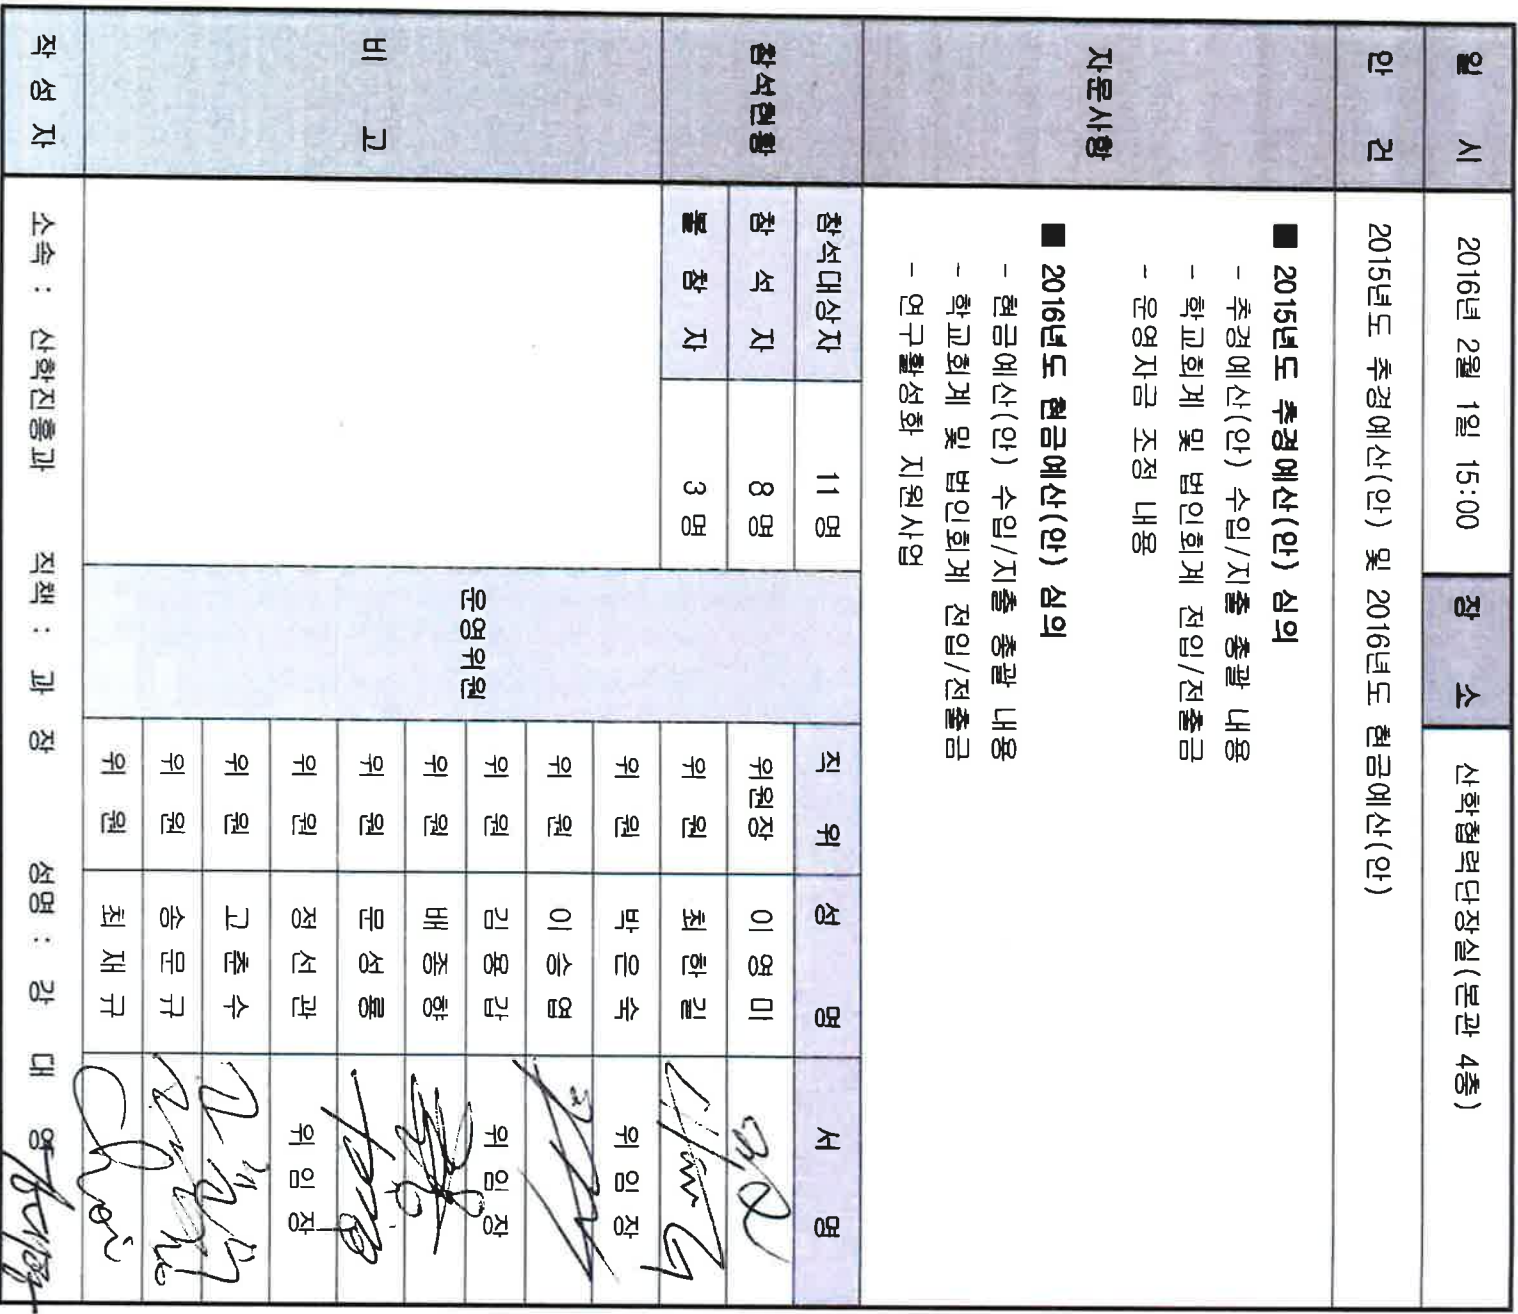 일 시 2016년 2월 1일 15:00 장 소 산학협력단장실(본관 4층)
안 건 2015년도 추경예산(안) 및 2016년도 현금예산(안)
자문사항
■ 2015년도 추경예산(안) 심의
- 추경예산(안) 수입/지출 총괄 내용
- 학교회계 및 법인회계 전입/전출금
- 운영자금 조정 내용
■ 2016년도 현금예산(안) 심의
- 현금예산(안) 수입/지출 총괄 내용
- 학교회계 및 법인회계 전입/전출금
- 연구활성화 지원사업
참석현황
참석대상자 11 명
참 석 자 8 명
불 참 자 3 명
비 고
운영위원
직 위 성 명 서 명
위원장 이 영 미
위 원 최 한 길
위 원 박 은 숙 위 임 장
위 원 이 승 엽
위 원 김 용 감 위 임 장
위 원 배 종 향
위 원 문 성 룡
위 원 정 선 관 위 임 장
위 원 고 춘 수
위 원 송 문 규
위 원 최 재 규
작 성 자 소속 : 산학진흥과 직책 : 과 장 성명 : 강 대 영